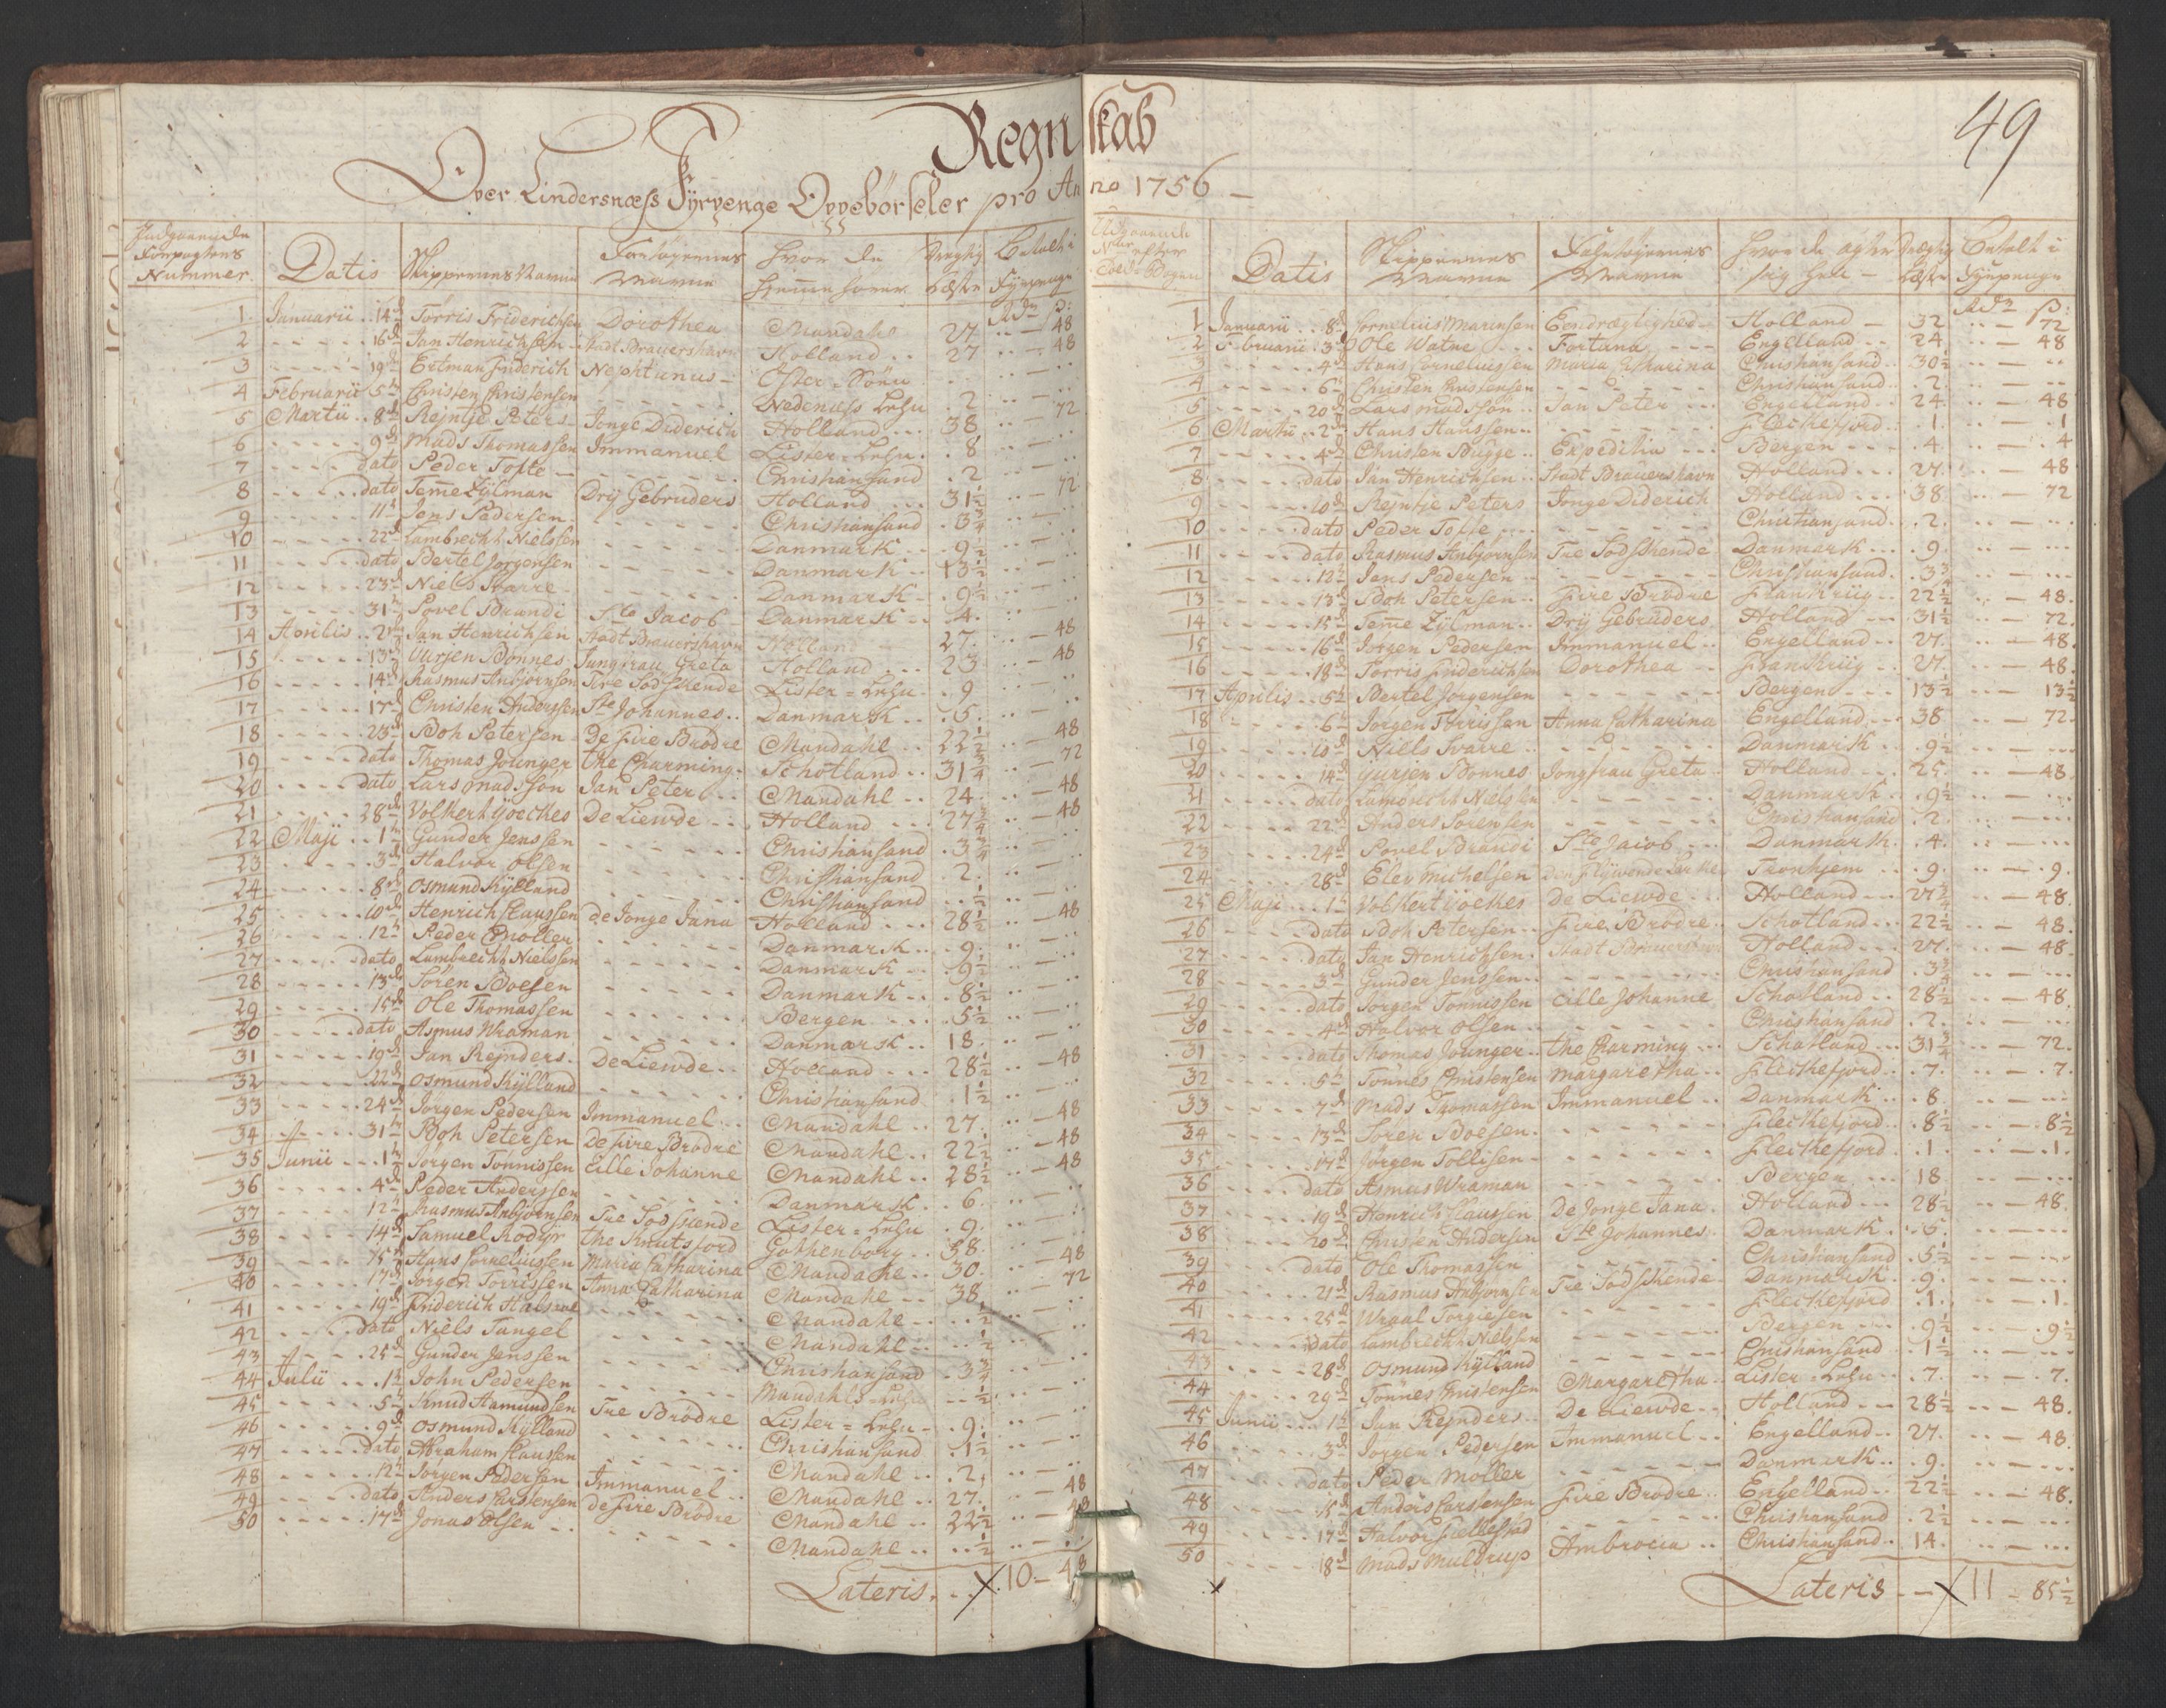 Regnskab
49
Over Lindersnæss Fyrpenge Oppebörseler pro Anno 1756
Indgaaende Forpagtens Nummer | Datis | Skippernes Navne | Fartöyernes Navne | Hvor de Hiemme hörer | Drægtig Læster | Betalt i Fyrpenge
Rdr ß:
1 Januarii 14de Torris Friderichsen Dorothea Mandahl 27 48
2 16de Jan Henrichsen Stadt Brauershavn Holland 27 48
3 19de Ertman Friderich Nephtunus Öster-Söen
4 Februarii 5te Christen Christensen Nedenæss Lehn 2
5 Martii 8de Rejntje Peters Jonge Diderich Holland 38 72
6 9de Mads Thomassen Immanuel Lister-Lehn 8
7 dato Peder Tofte Christiansand 2
8 dato Temme Zylman Dry Gebruders Holland 31½ 72
9 11te Jens Pedersen Christiansand 3¾
10 22de Lambrecht Nielssen Danmark 9½
11 dato Bertel Jorgensen Danmark 13½
12 23de Niels Svarre Danmark 9½
13 31te Povel Brandi Ste Jacob Danmark 4
14 Aprilis 2den Jan Henrichsen Stadt Brauershavn Holland 27 48
15 13de Uurjen Bonnes Jungfrau Greta Holland 23 48
16 14de Rasmus Anbjornsen Tre Södskende Lister-Lehn 9
17 17de Christen Anderssen Ste Johannes Danmark 5
18 23de Boh Petersen De Fire Brødre Mandahl 22½ 48
19 dato Thomas Jounger the Charming Schotland 31¾ 72
20 dato Lars Madssøn Jan Peter Mandahl 24 48
21 28de Volkert Yoetkes De Liewde Holland 27¾ 48
22 Maji 1te Gunder Jenssen Christiansand 3¾
23 3de Halvor Olsen Christiansand 2
24 8de Osmund Kylland Christiansand ½
25 10de Henrich Claussen de Jonge Jana Holland 28½ 48
26 12te Peder Møller Danmark 9
27 dato Lambrecht Nielssen Danmark 9½
28 13de Søren Boesen Danmark 8½
29 15de Ole Thomassen Bergen 5½
30 dato Asmus Wraman Danmark 18
31 19de Jan Rejnders De Liewde Holland 28½ 48
32 22de Osmund Kylland Christiansand 1½
33 24de Jørgen Pedersen Immanuel Mandahl 27 48
34 31te Boh Petersen De Fire Brødre Mandahl 22½ 48
35 Junii 1te Jorgen Tønnissen Eille Johanne Mandahl 28½ 48
36 4de Peder Anderssen Danmark 6
37 12te Rasmus Anbjornsen Tre Sødskende Lister-Lehn 9
38 14de Samuel Rodyr the Knutsford Gothenborg 38
39 15de Hans Corneliussen Maria Catharina Mandahl 30 48
40 17de Jorgen Torrissen Anna Catharina Mandahl 38 72
41 19de Friderich Mandahl ½
42 dato Niels Tangel Mandahl ½
43 25de Gunder Jenssen Christiansand 3¾
44 Julii 1te John Pedersen Mandahls Lehn ½
45 5te Knud Hamundsen Tre Brødre Lister-Lehn 9
46 9de Osmund Kylland Christiansand 1½
47 dato Abraham Claussen Mandahl 2
48 12te Jørgen Pedersen Immanuel Mandahl 27 48
49 dato Anders Carstensen de Fire Brødre Mandahl 22½ 48
50 17de Jonas Olsen Mandahl ½
Lateris 10 - 48
Udgaaende Nur efter Bogen | Datis | Skippernes Navne | Fahrtöjernes Navne | Hvor de agter sig hen | Drægtig Læster | Betalt i Fyrpenge
Rdr ß:
1 Januarii 8de Cornelius Marinsen Eendrægtighed Holland 32 72
2 Februarii 3de Ole Watne Fortuna Engelland 24 48
3 4de Hans Corneliussen Maria Catharina Christiansand 30½
4 6te Christen Christensen Christiansand 2
5 20de Lars Madssøn Jan Peter Engelland 24 48
6 Martii 2den Hans Hanssen Fleckefjord 1 1
7 4de Christen Bugge Expeditia Bergen 4 4
8 dato Jan Henrichsen Stadt Brauershavn Holland 27 48
9 10de Rejntje Peters Jonge Diderich Holland 38 72
10 dato Peder Tofte Christiansand 2
11 dato Rasmus Anbjornsen Tre Södskende Danmark 9
12 12te Jens Pedersen Christiansand 3¾
13 13de Boh Petersen Fire Brödre Frankriig 22½ 48
14 15de Temme Zylman Dry Gebruders Holland 31½ 72
15 16de Jørgen Pedersen Immanuel Engelland 27 48
16 18de Torris Friderichsen Dorothea Frankriig 27 48
17 Aprilis 5te Bertel Jorgensen Bergen 13½ 13½
18 6te Jorgen Torrissen Anna Catharina Engelland 38 72
19 10de Niels Svarre Danmark 9½
20 14de Yurjen Bonnes Jongfrau Greta Holland 25 48
21 dato Lambrecht Nielssen Danmark 9½
22 22de Anders Sørensen Christiansand 2
23 24de Povel Brandi Ste Jacob Danmark 4
24 28de Elev Michelsen Den Flyvende Lærke Tronhjem 9 9
25 Maji 1te Volkert Yoetkes De Liewde Holland 27¾ 48
26 dato Boh Petersen Fire Brødre Schotland 22½ 48
27 dato Jan Henrichsen Stadt Brauershavn Holland 27 48
28 3de Gunder Jenssen Christiansand 3¾
29 dato Jorgen Tønnissen Eille Johanne Schotland 28½ 48
30 4de Halvor Olsen Christiansand 2
31 dato Thomas Jounger the Charming Schotland 31¾ 72
32 5te Tønnes Christensen Margaretha Fleckefjord 7 7
33 7de Mads Thomassen Immanuel Danmark 8
34 13de Søren Boesen Fleckefjord 8½ 8½
35 17de Jørgen Tollisen Fleckefjord 1 1
36 dato Asmus Wraman Bergen 18
37 19de Henrich Claussen De Jonge Jana Holland 28½ 48
38 20de Christen Andersen Ste Johannes Danmark 5
39 dato Ole Thomassen Christiansand 5½
40 21de Rasmus Anbjornsen Tre Södskende Danmark 9
41 25de Wraal Torgiesen Fleckefjord 1 1
42 dato Lambrecht Nielssen Bergen 9½ 9½
43 28de Osmund Kylland Christiansand 1½
44 29de Tønnes Christensen Margaretha Lister-Lehn 7 7
45 Junii 1te Jan Rejnders De Liewde Holland 28½ 48
46 3de Jørgen Pedersen Immanuel Engelland 27 48
47 dato Peder Møller Danmark 9
48 15de Anders Carstensen Fire Brødre Engelland 22½ 48
49 17de Halvor Christiansand 2½
50 18de Mads Muldrup Ambrocia Christiansand 14
Lateris 11 - 85½